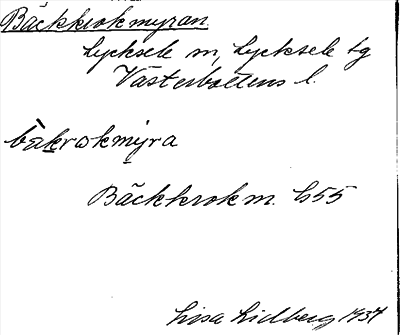 Bäckkrokmyran.
Lycksele m, Lycksele tg
Västerbottens l.
bäkrokmyra
Bäckkrokm. h55
Lisa Lidberg 1937